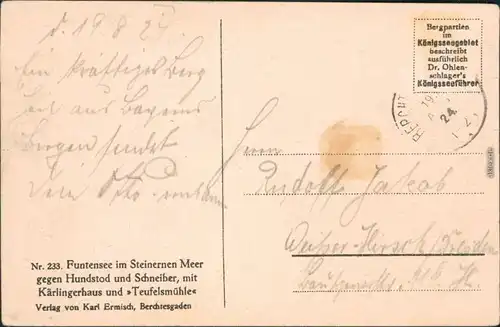 d. 19 8 24
Ein kräftiges Berg
heil aus Bayerns
Bergen sendet
Dein Otto
Bergpartien
im
Königsseegebiet
beschreibt
ausführlich
Dr. Ohlen-
schlager's
Königsseeführer
BERCHT
19
24
Herrn
Rudolf Jakob
Weißer-Hirsch, Dresden
Nr. 233. Funtensee im Steinernen Meer
gegen Hundstod und Schneiber, mit
Kärlingerhaus und »Teufelsmühle«
Verlag von Karl Ermisch, Berchtesgaden